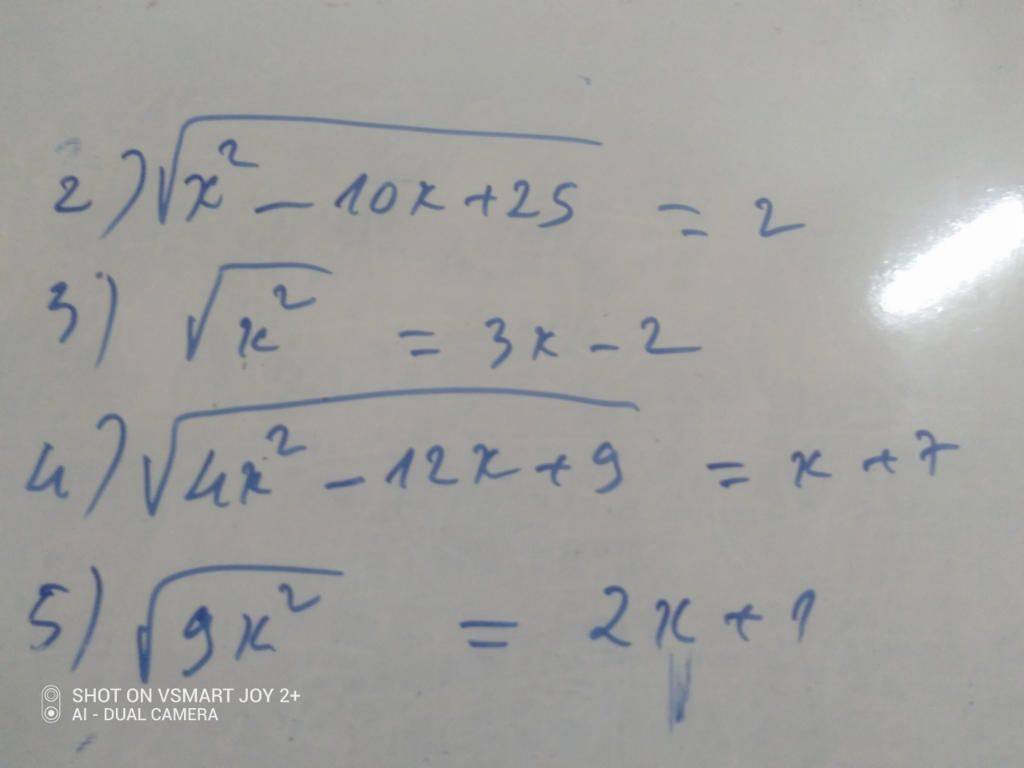 2) √(x² - 10x + 25) = 2
3) √(x²) = 3x - 2
4) √(4x² - 12x + 9) = x + 7
5) √(9x²) = 2x + 1
SHOT ON VSMART JOY 2+
AI - DUAL CAMERA